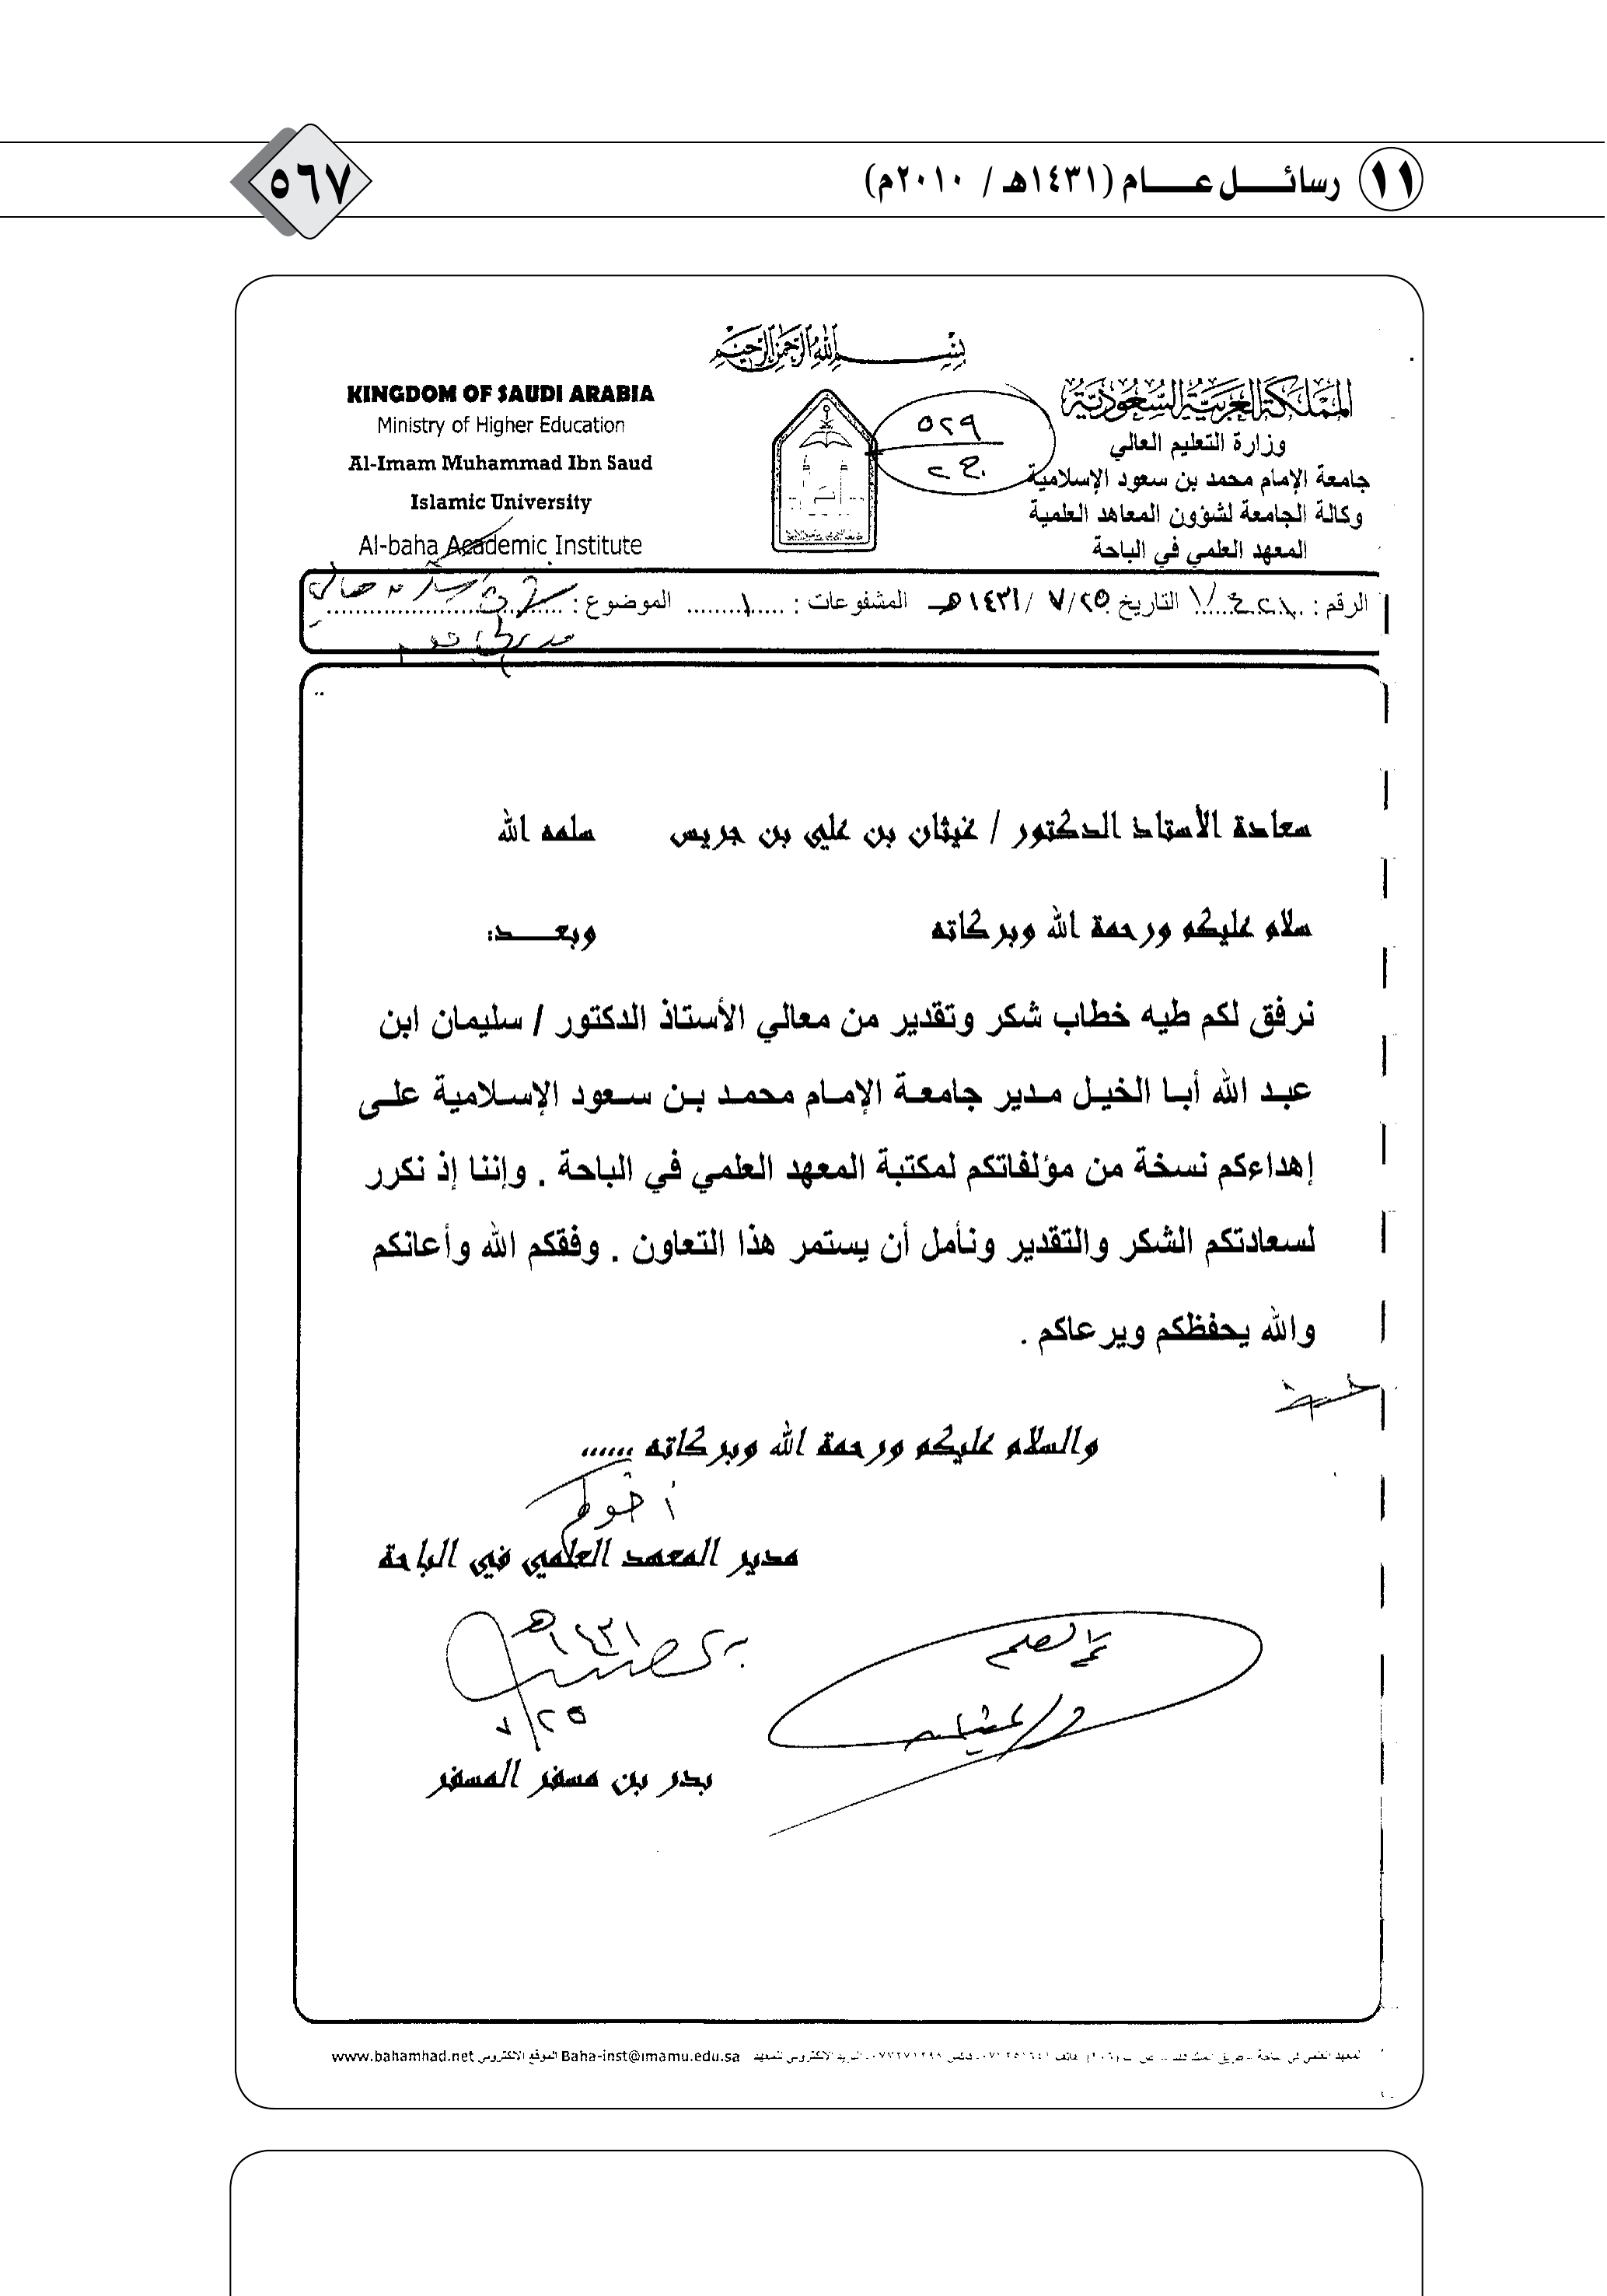 ١١ رسائل عام (١٤٣١هـ / ٢٠١٠م)
٥٦٧
بسم الله الرحمن الرحيم
المملكة العربية السعودية
وزارة التعليم العالي
جامعة الإمام محمد بن سعود الإسلامية
وكالة الجامعة لشؤون المعاهد العلمية
المعهد العلمي في الباحة
KINGDOM OF SAUDI ARABIA
Ministry of Higher Education
Al-Imam Muhammad Ibn Saud
Islamic University
Al-baha Academic Institute
٥٢٩
الرقم : التاريخ ٢٥/ ٧ / ١٤٣١هـ المشفوعات : ١ الموضوع :
سعادة الأستاذ الدكتور / غيثان بن علي بن جريس سلمه الله
سلام عليكم ورحمة الله وبركاته وبعـــد:
نرفق لكم طيه خطاب شكر وتقدير من معالي الأستاذ الدكتور / سليمان ابن
عبد الله أبا الخيل مدير جامعة الإمام محمد بن سعود الإسلامية على
إهداءكم نسخة من مؤلفاتكم لمكتبة المعهد العلمي في الباحة . وإننا إذ نكرر
لسعادتكم الشكر والتقدير ونأمل أن يستمر هذا التعاون . وفقكم الله وأعانكم
والله يحفظكم ويرعاكم .
والسلام عليكم ورحمة الله وبركاته ،،،،،،
أخوكم
مدير المعهد العلمي في الباحة
١٤٣١هـ
٧/٢٥
بدر بن مسفر المسفر
Baha-inst@imamu.edu.sa الموقع الالكتروني www.bahamhad.net